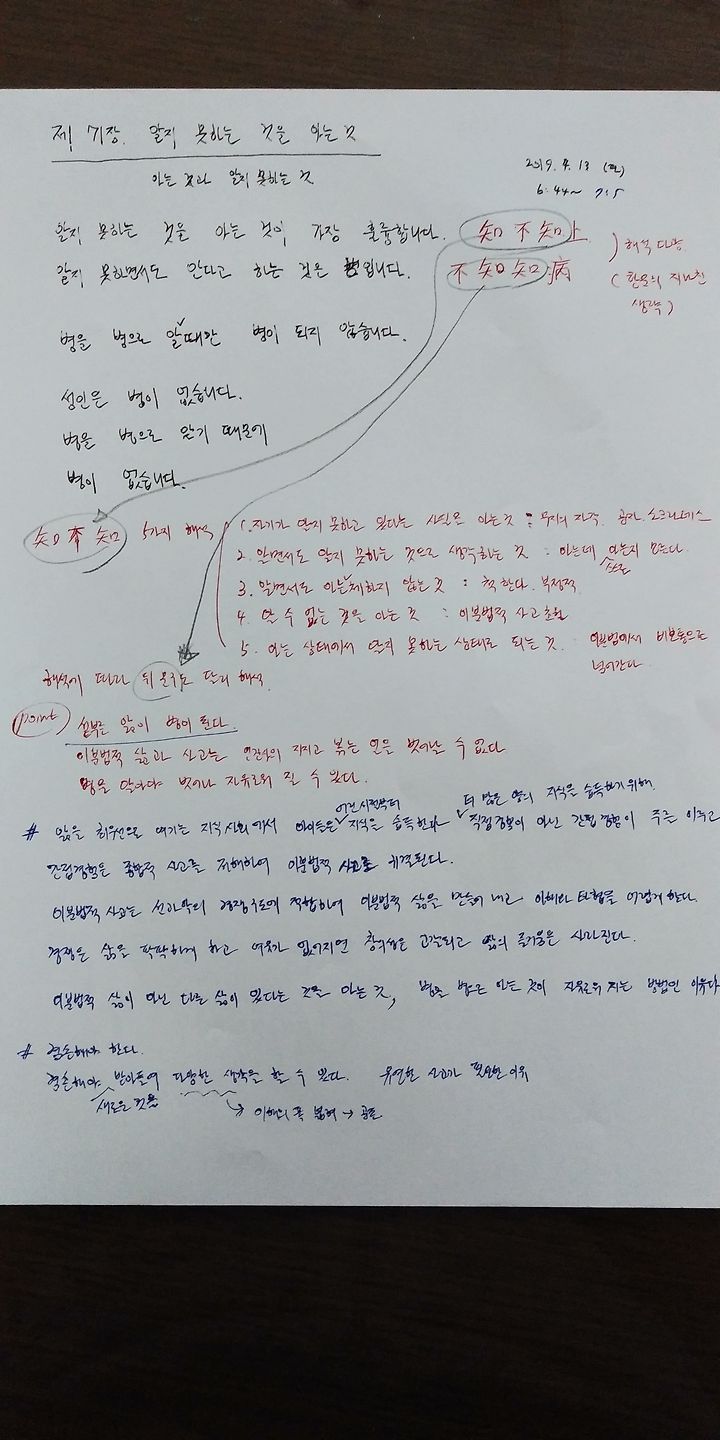 제 71장. 알지 못하는 것을 아는 것
아는 것과 알지 못하는 것
6:44~ 7:5
알지 못하는 것을 아는 것이 가장 훌륭합니다. 知不知上
알지 못하면서도 안다고 하는 것은 병입니다. 不知知病
) 해석 다양
(한문의 지나친
생략)
병을 병으로 알 때만 병이 되지 않습니다.
성인은 병이 없습니다.
병을 병으로 알기 때문에
병이 없습니다.
知不知 5가지 해석
1. 자기가 알지 못하고 있다는 사실을 아는 것 : 무지의 자각. 공자. 소크라테스
2. 알면서도 알지 못하는 것으로 생각하는 것 : 아는데 아는지 모른다.
3. 알면서도 아는 체하지 않는 것 : 척한다. 부정적
4. 알 수 없는 것을 아는 것 : 이분법적 사고 초월
5. 아는 상태에서 알지 못하는 상태로 되는 것. 이분법에서 비보통으로
넘어간다.
해석에 따라 뒤 문구도 달리 해석.
point
섣부른 앎이 병이 된다.
이분법적 삶과 사고는 인간사의 지지고 볶는 일을 벗어날 수 없다.
병을 알아야 벗어나 자유로워 질 수 있다.
어린시절부터 더 많은 양의 지식을 습득하기 위해
# 앎을 최우선으로 여기는 지식사회에서 아이들은 지식을 습득한다 직접경험이 아닌 간접경험이 주를 이루고
간접경험은 종합적 사고를 저해하여 이분법적 사고로 귀결된다.
이분법적 사고는 선과악의 경쟁구도에 적합하여 이분법적 삶을 만들어 내고 이해와 타협을 어렵게 한다.
경쟁은 삶을 팍팍하게 하고 여유가 없어지면 창의성은 고갈되고 앎의 즐거움은 사라진다.
이분법적 삶이 아닌 다른 삶이 있다는 것을 아는 것, 병을 병으로 아는 것이 자유로워 지는 방법인 이유다
# 겸손해야 한다.
겸손해야 받아들여 다양한 생각을 할 수 있다. 유연한 사고가 필요한 이유
새로운 것을
이해의 폭 넓혀 →